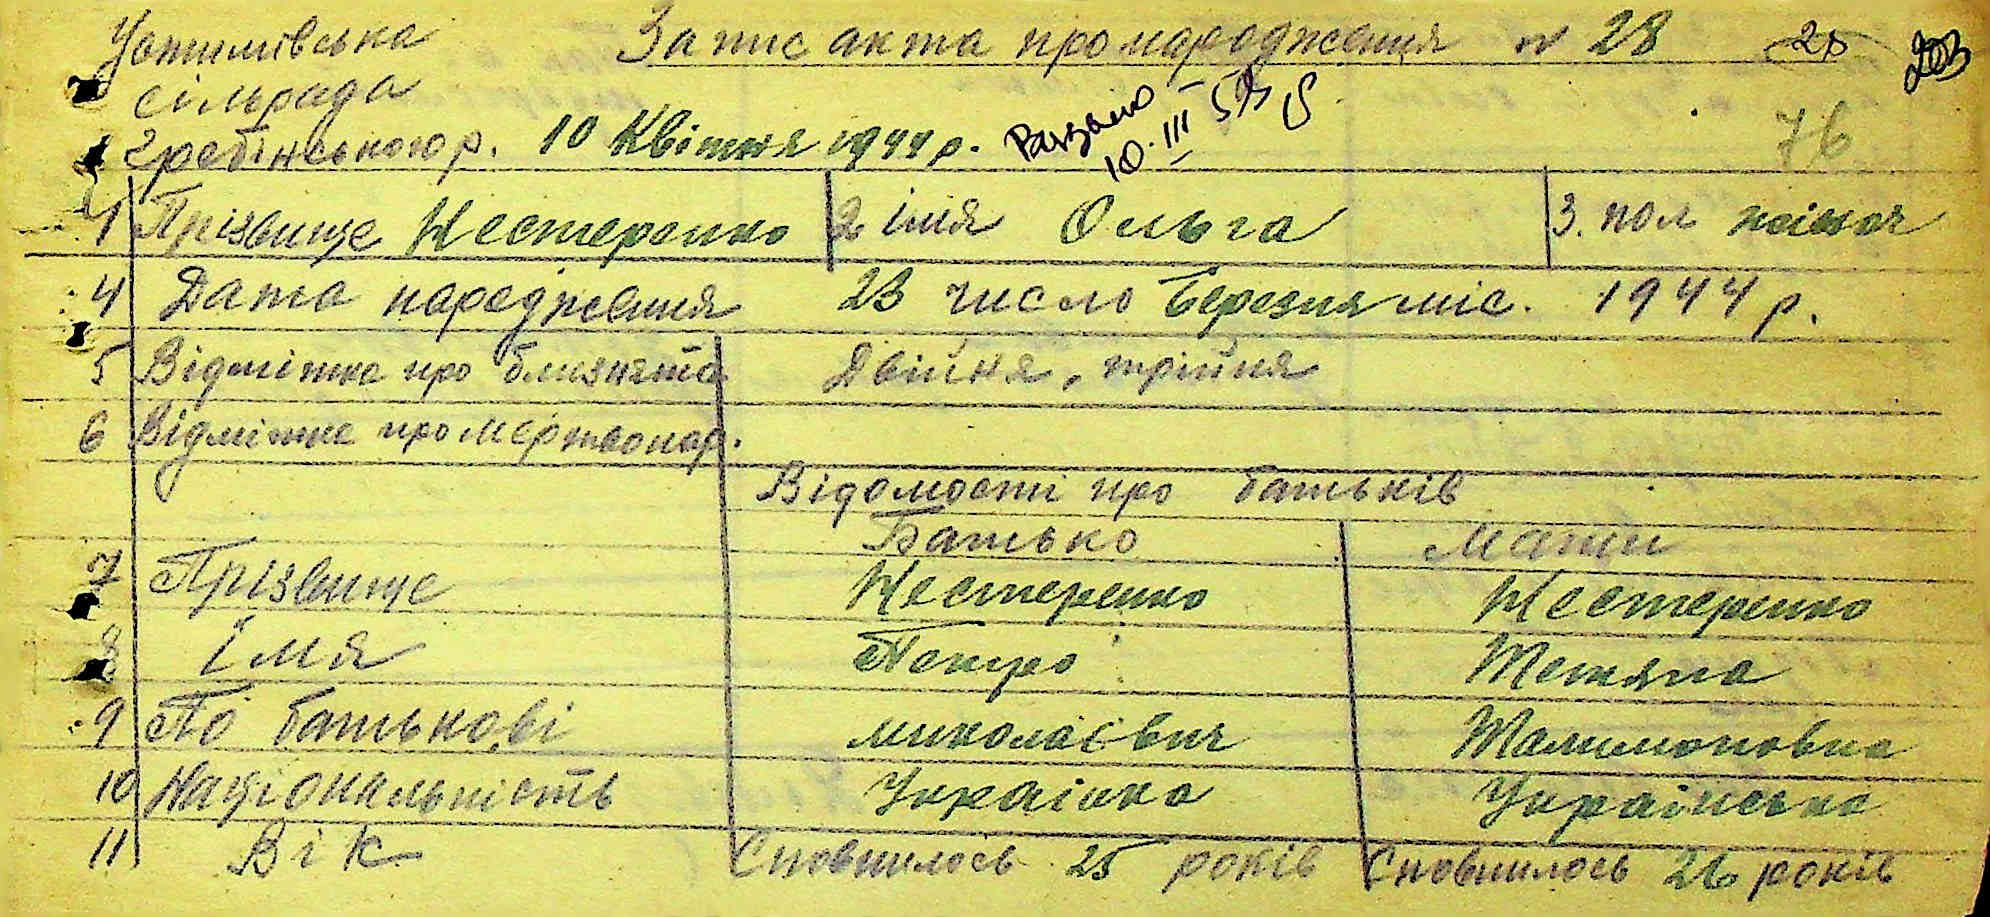 Устимівська Запис акта про народження № 28 28 203
сільрада 76
Гребінського р. 10 Квітня 1944 р. Видано 10.III 53
1 Прізвище Нестеренко 2 імя Ольга 3. пол жіноч
4 Дата народження 23 число Березня міс. 1944 р.
5 Відмітка про близнята Двійня, трійня
6 Відмітка про мертвонар.
Відомості про батьків
Батько Мати
7 Прізвище Нестеренко Нестеренко
8 Імя Петро Тетяна
9 По батькові миколаєвич Талимоновна
10 Національність Українка Українська
11 Вік Сповнилось 25 років Сповнилось 26 років